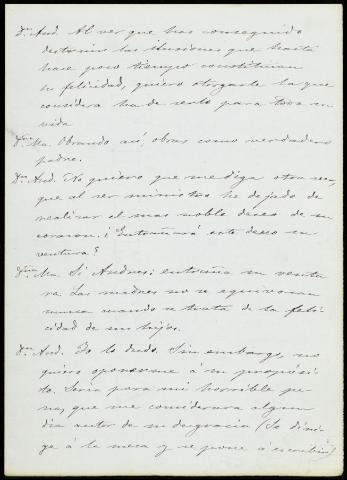 Dn. And. Al ver que has conseguido
destruir las ilusiones que hasta
hace poco tiempo constituian
su felicidad, quiero otorgarle la que
considera ha de serlo para toda su
vida
Dña. Ma. Obrando asi, obras como verdadero
padre.
Dn. And. No quiero que me diga otra vez,
que al ser ministro he dejado de
realizar el mas noble deseo de su
corazon. ¿Entrañará este deseo su
ventura?
Dña. Ma. Si Andres: entraña su ventu
ra. Las madres no se equivocan
nunca cuando se trata de la feli
cidad de sus hijos.
Dn. And. Yo lo dudo. Sin embargo, no
quiero oponerme á su propósi
to. Seria para mi horrible pe
na, que me considerara algun
dia autor de su desgracia (Se diri
ge á la mesa y se pone á escribir)